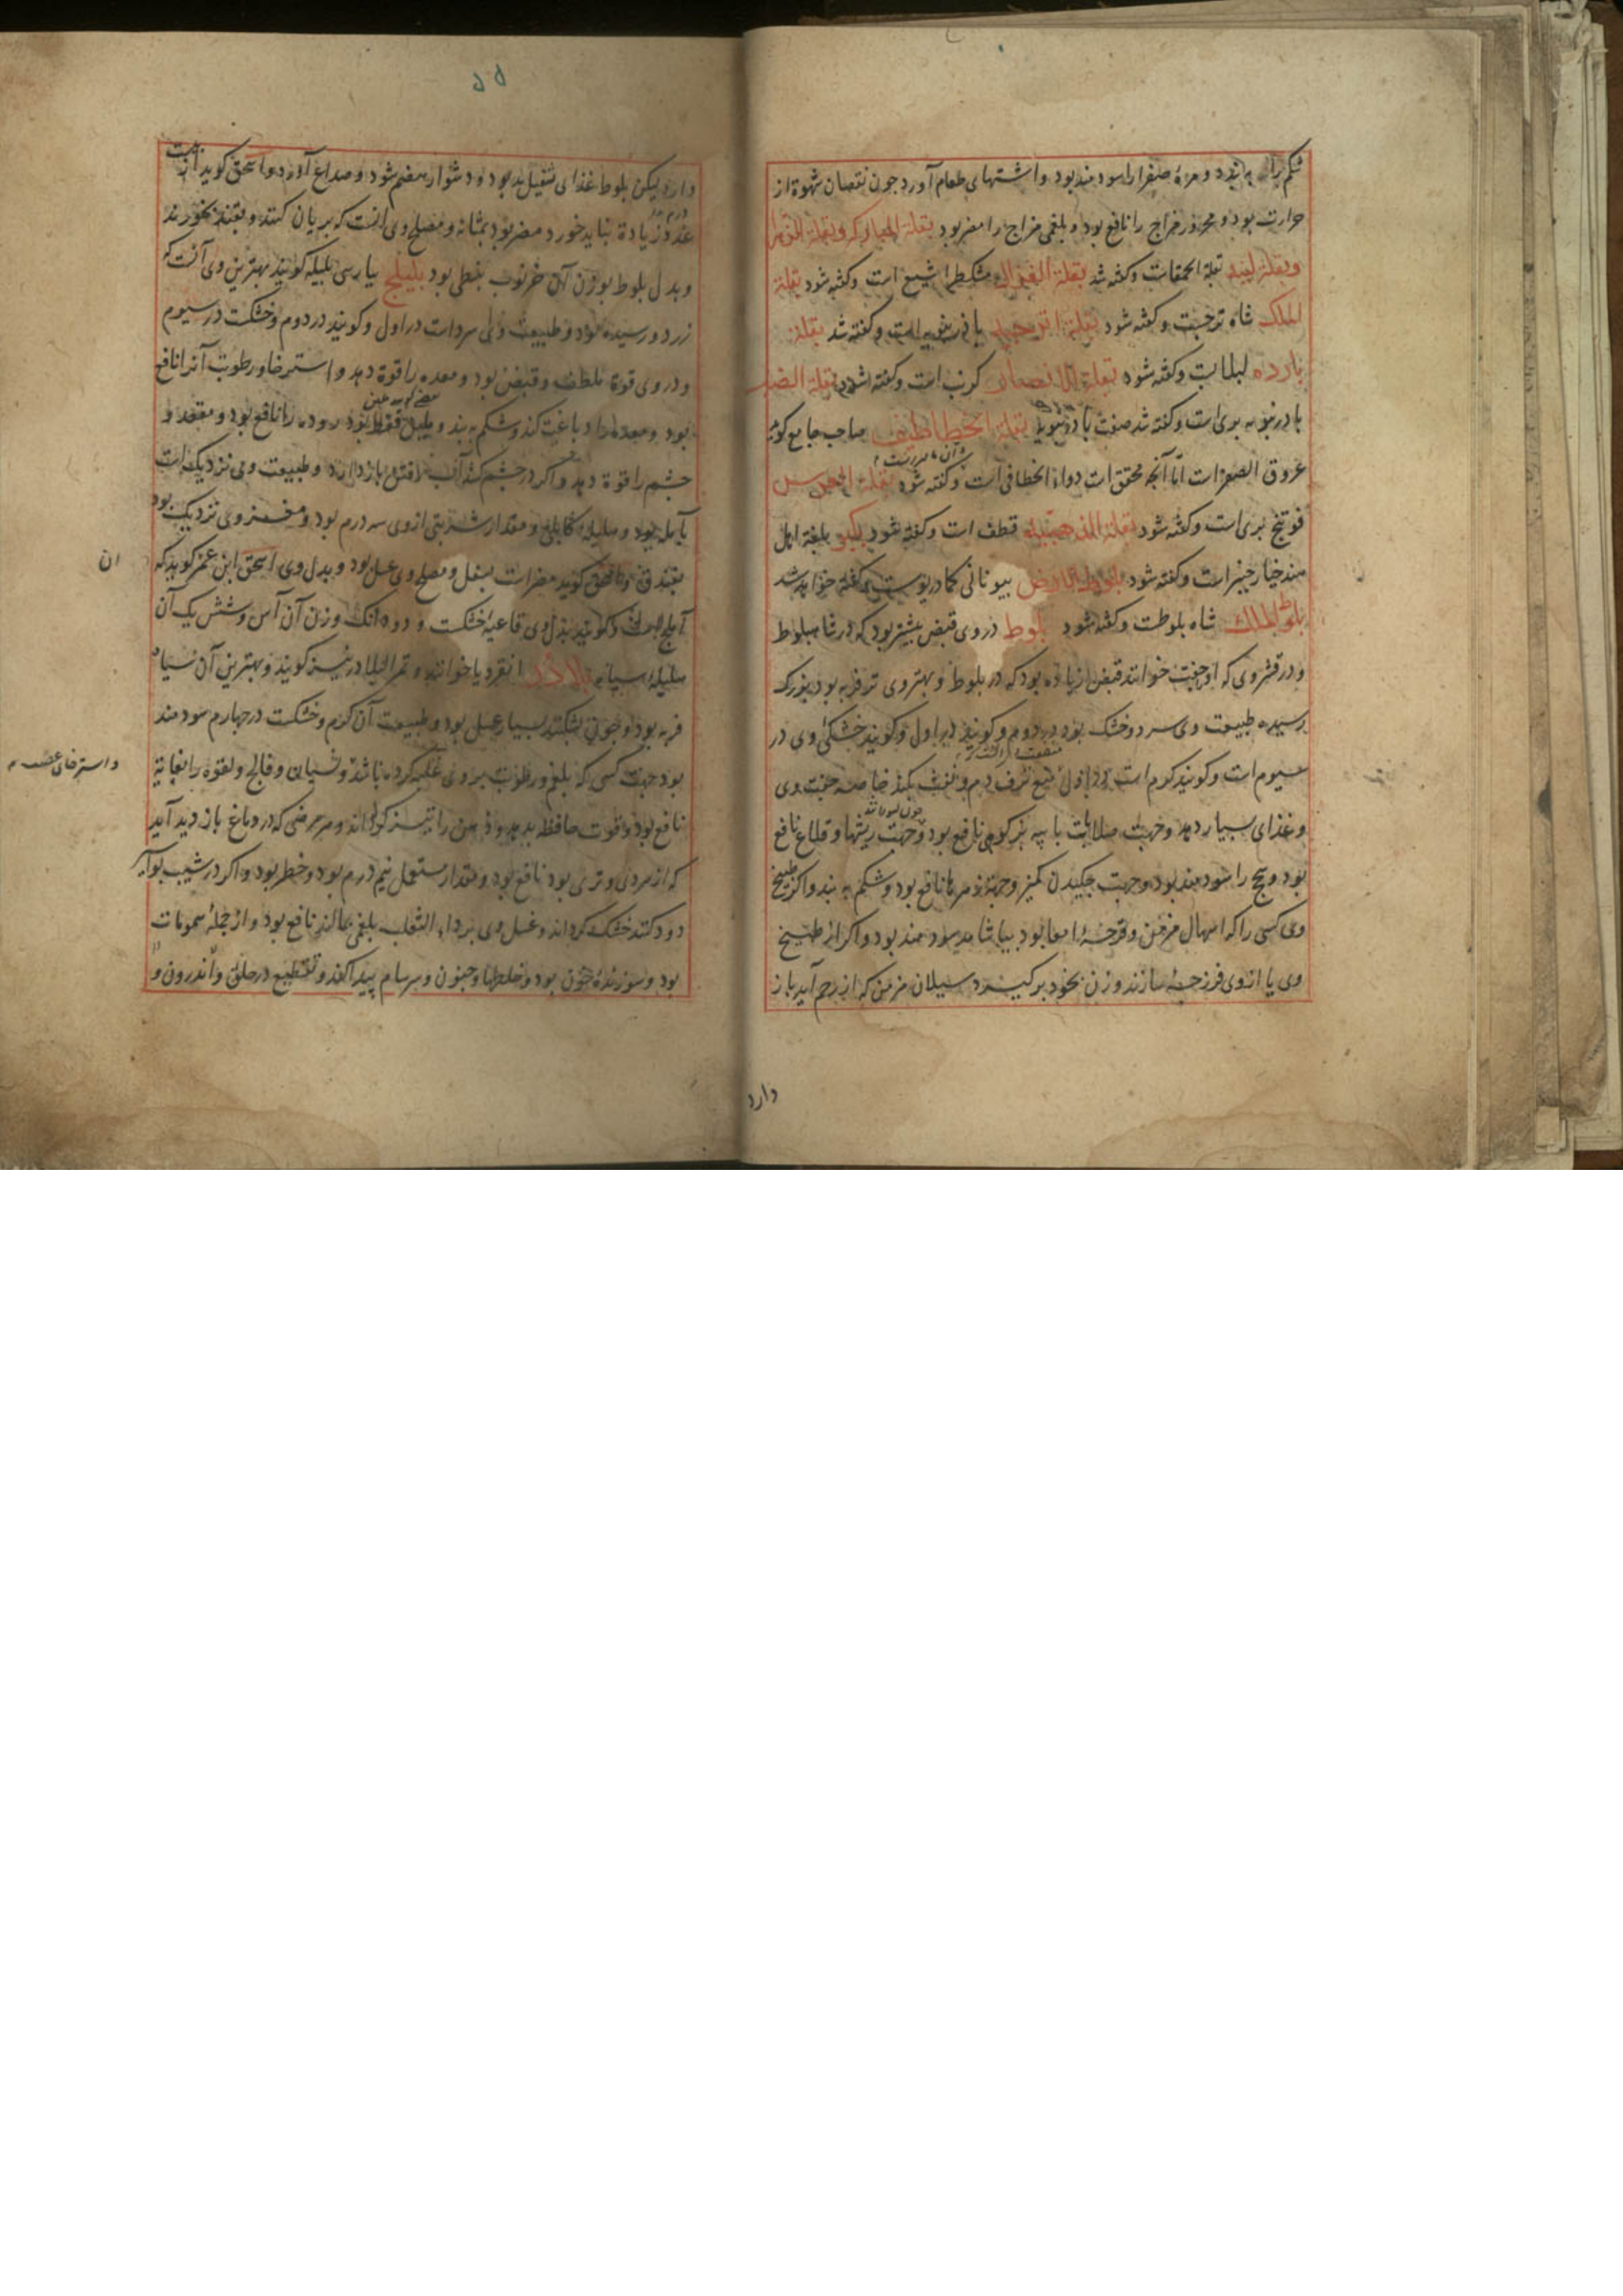 شکم را به بندد و مرهٔ صفرا را سودمند بود و اشتهای طعام آورد چون نقصان شهوة از
حرارت بود و محرور مزاج را نافع بود و بلغمی مزاج را مضر بود بقلة المبارکه و بقلة الزهرا
و بقلة لینه بقلة الحمقات و کفته شد بقلة الغزال مشکطرا شیع است و کفته شود بقلة
الملک شاه ترجست و کفته شود بقلة اترجیه بادرنبویه است و کفته شد بقلة
بارده لبلابت و کفته شود بقلة الانصار کرنب است و کفته شود بقلة الضب
بادرنبویه بری است و کفته شد صفت بادرنبویه بقلة الخطاطیف صاحب جامع کوید
عروق الصفر است امّا آنچه محقق است دواء الخطافی است و کفته شود بقلة
فوتنج بری است و کفته شود بقلة الذهبیه قطف است و کفته شود بکبر بلغة اهل
هند خیار چنبر است و کفته شود بلوط الارض بیونانی کمادریوست و کفته خواهد شد
بلوط الملک شاه بلوطت و کفته شود بلوط در وی قبض بیشتر بود که در شاهبلوط
و در قشر وی که او جفت خوانند قبض زیاده بود که در بلوط و بهتر وی تر فربه بود بزرک
رسیده طبیعت وی سرد و خشک بود در دوم و کویند در اول و کویند خشکی وی در
سیوم است و کویند کرم است در اول منع نزف دم و نفث بکند خاصه جفت وی
و غذای بسیار دهد و جهت صلابات با پیه بز کوهی نافع بود و جهت ریشها و قلاع نافع
بود و سحج را سودمند بود و جهت چکیدن کمیز و جهت زهرها نافع بود و شکم به بندد و اکر طبیخ
وی کسی را که اسهال مزمن و قرحهٔ امعا بود بیاشامد سودمند بود و اکر از طبیخ
وی یا از وی فرزجه سازند و زن بخود برکیرد سیلان مزمن که از رحم آید باز
دارد
دارد لیکن بلوط غذای ثقیل بد بود و دشوار هضم شود و صداع آورد و اسحق کوید
عدد زیادة نباید خورد مضر بود بمثانه و مصلح وی آنست که بریان کنند و بقند بخورند
و بدل بلوط بوزن آن خرنوب نبطی بود بلیلج بپارسی بلیله کویند بهترین وی آنست که
زرد و رسیده بود و طبیعت وی سرد است در اول و کویند در دوم و خشکست در سیوم
و در وی قوة ملطف و قبض بود و معده را قوة دهد و استرخا و رطوبت آنرا نافع
بود و معده را دباغت کند و شکم به بندد و روده را نافع بود و مقعد و
چشم را قوة دهد و اکر در چشم کشند آب رفتن باز دارد و طبیعت وی نزدیکست
بآمله بود و هلیله کابلی و مقدار شربتی از وی سه درم بود و مغز وی نزدیک بود
بفندق و اسحق کوید مضر است بسفل و مصلح وی عسل بود و بدل وی اسحق ابن عمر کوید که
آملج است و کویند بدل وی فاغیه خشکست و دو دانک وزن آن آس و شش یک آن
هلیلهٔ سیاه بلادر انقردیا خوانند و تمر البلادر نیز کویند و بهترین آن سیاه
فربه بود و چون بشکنند بسیار عسل بود و طبیعت آن کرم و خشکست در چهارم سودمند
بود جهت کسی که بلغم و رطوبت بر وی غلبه کرده باشد و نسیان و فالج و لقوه را بغایة
و استرخای عصب
نافع بود و قوت حافظه بدهد و ذهن را تیز کرداند و هر مرضی که در دماغ بازدید آید
که از سردی و تری بود نافع بود و مقدار مستعمل نیم درم بود و خطر بود و اکر در شیب بواسیر
دود کنند خشک کرداند و عسل وی بر داء الثعلب بلغمی بمالند نافع بود و از جملهٔ سمومات
بود و سوزندهٔ خون بود و خلطها و جنون و سرسام پیدا کند و تقطیع در حلق و اندرون و